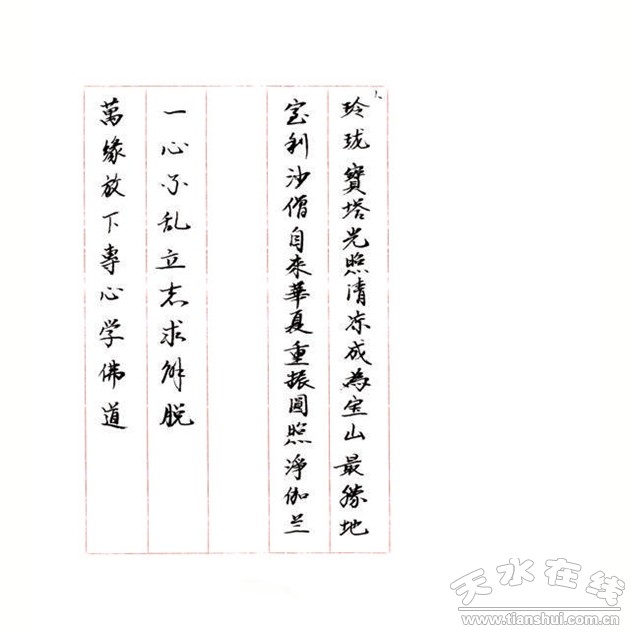 玲珑寶塔光照清凉成为宝山最勝地
室利沙僧自来華夏重振圆照淨伽兰
一心不乱立志求解脱
萬缘放下專心学佛道
天水在线
www.tianshui.com.cn